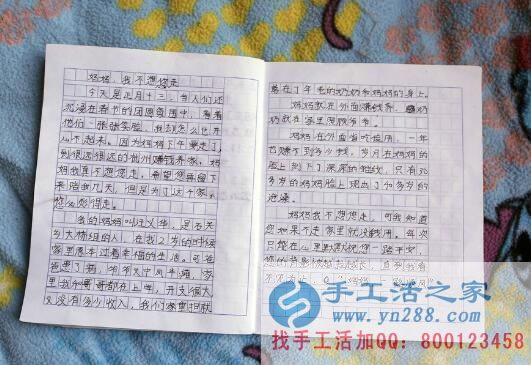 妈妈,我不想您走
今天是正月十三,当人们还
沉浸在春节的团圆氛围中,看着
他们一张张笑脸,我却怎么也开
心不起来。因为妈妈下午要走了,
到很远很远的 州赚钱养家。妈
妈我真不想您走。希望您再留下
来陪我几天,但是为了这个家,
您必须得走。
我的妈妈叫 华,是
乡大桥组的人,在我2岁的时候
家里原本过着幸福的生活。可爸
爸患了病,
里我和哥哥都在上学,开支很大
又没有多少收入,我们家里担就
落在了年老的奶奶和妈妈的身上。
妈妈就在外面赚钱养 ,奶
奶我在家里照顾爷爷。
妈妈在外面省吃俭用,一年
也赚不到多少钱,岁月在妈妈的
脸上刻下了深深的皱纹,只有30
多岁的妈妈脸上现出了40多岁的
沧桑。
妈妈我不想您走,可我知道
您如果不走家里就没钱用。每次
只能在心里默默祝您一路平安,
您的背影
手工活之家
www.yn288.com
找手工活加QQ:800123458